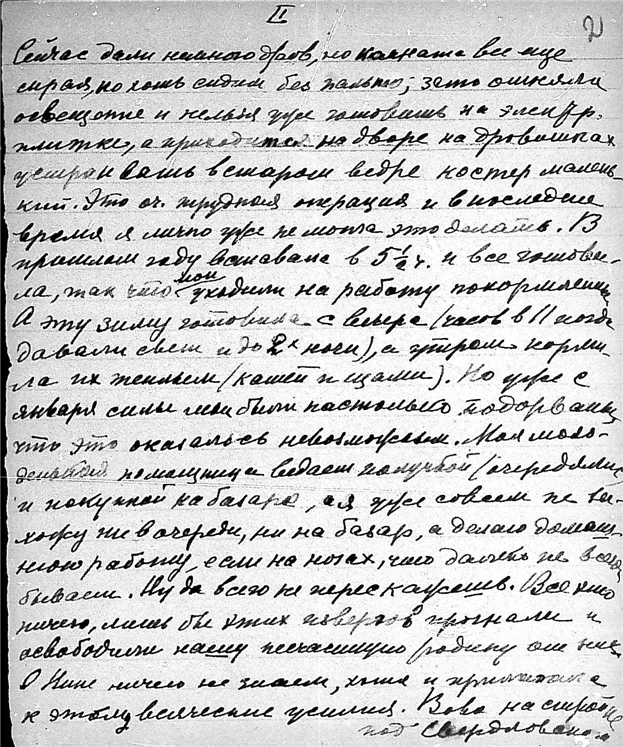 II
2
Сейчас дали немного дров, но комната все еще
сырая, но хоть сидим без пальто; зато отняли
освещение и нельзя уже готовить на электр.
плитке, а приходится на дворе на дровишках
устраивать в старом ведре костер малень-
кий. Это оч. трудная операция и в последнее
время я лично уже не могла это делать. В
прошлом году вставала в 5½ ч. и все готови-
ла, так что мои уходили на работу покормленные.
А эту зиму готовила с вечера (часов в 11 когда
давали свет и до 2х ночи), а утром корми-
ла их теплым (кашей и щами). Но уже с
января силы мои были настолько подорваны,
что это оказалось невозможным. Моя моло-
денькая помощница ведает получкой (очередями)
и покупкой на базаре, а я уже совсем не вы-
хожу ни в очереди, ни на базар, а делаю домаш-
нюю работу, если на ногах, что далеко не всегда
бывает. Ну да всего не перескажешь. Все это
ничего, лишь бы этих извергов прогнали и
освободили нашу несчастную родину от них
О Нине ничего не знаем, хотя и прилагала
к этому всяческие усилия. Вова на стройке
под Свердловском